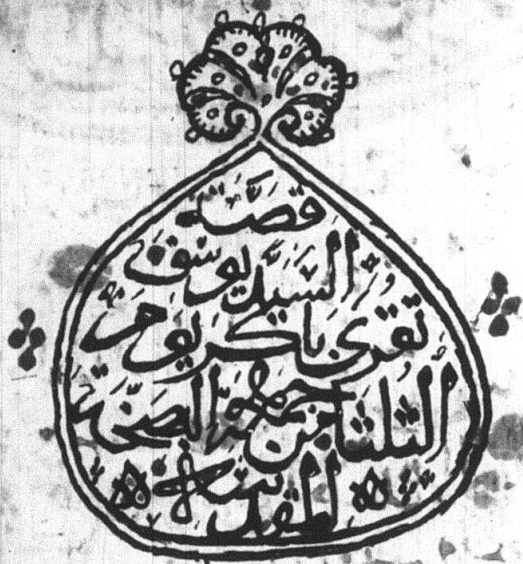 قصة
السيد يوسف
تقرى باكر يوم
الثلثا من جمعة البصخة
المقدسه